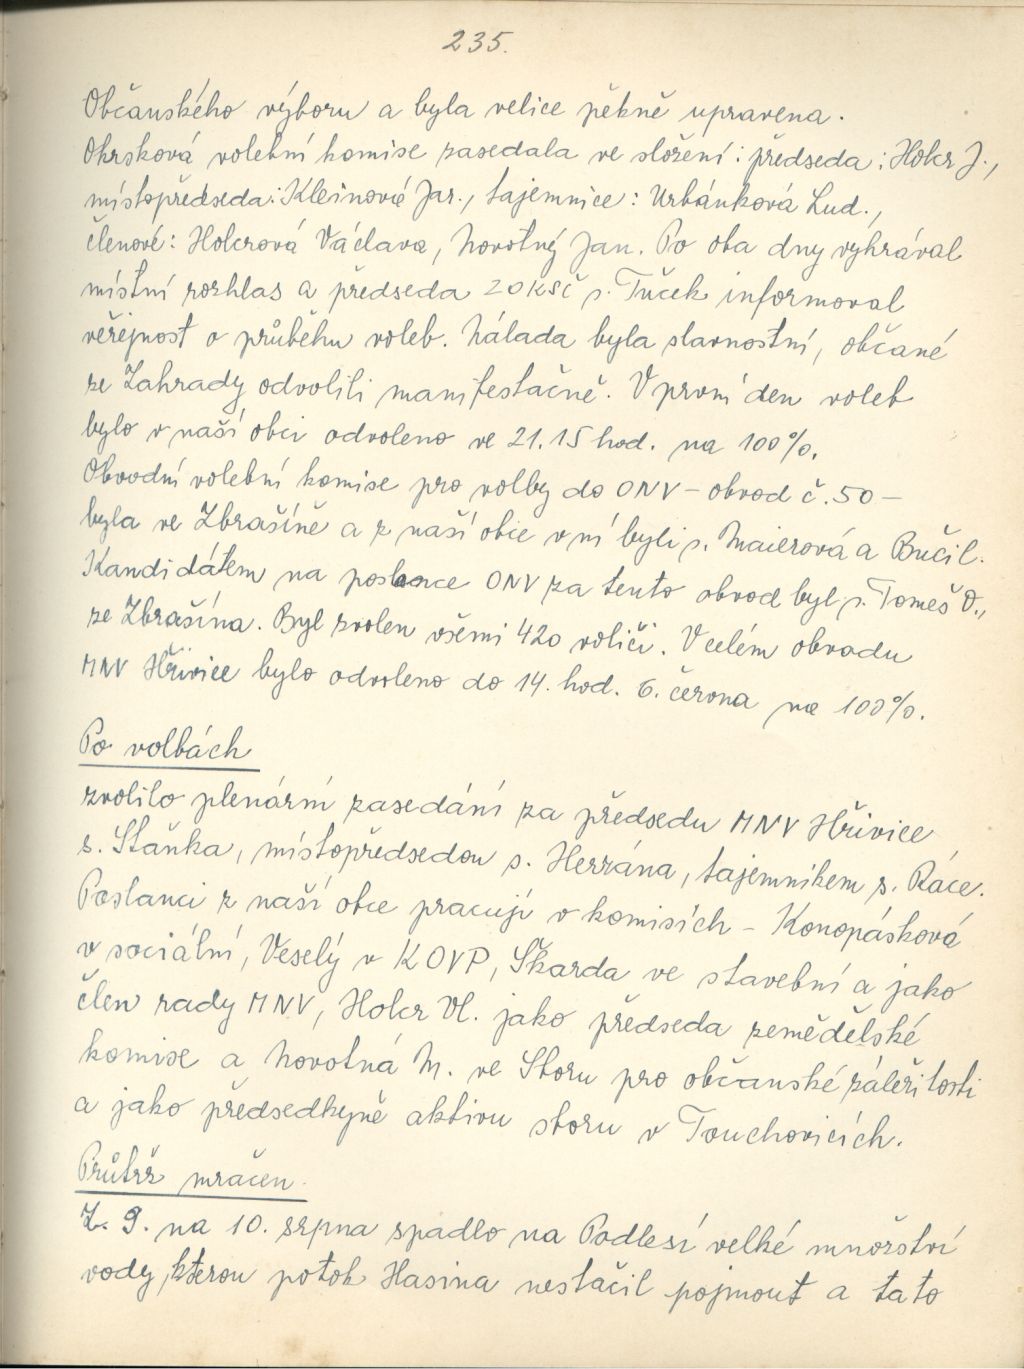 235.
Občanského výboru a byla velice pěkně upravena.
Okrsková volební komise zasedala ve složení: předseda: Holer J.,
místopředseda: Kleinová Jar., tajemnice: Urbánková Lud.,
členové: Holcrová Václava, Novotný Jan. Po oba dny vyhrával
místní rozhlas a předseda ZOKSČ s. Tuček informoval
veřejnost o průběhu voleb. Nálada byla slavnostní, občané
ze Zahrady odvolili manifestačně. V první den voleb
bylo v naší obci odvoleno ve 21.15 hod. na 100%.
Obvodní volební komise pro volby do ONV – obvod č. 50 –
byla ve Zbrašíně a z naší obce v ní byli s. Maierová a Bučil.
Kandidátem na poslance ONV za tento obvod byl s. Tomeš O.,
ze Zbrašína. Byl zvolen všemi 420 voliči. V celém obvodu
MNV Hřivice bylo odvoleno do 14. hod. 6. června na 100%.
Po volbách
zvolilo plenární zasedání za předsedu MNV Hřivice
s. Staňka, místopředsedou s. Herzána, tajemníkem s. Ráce.
Poslanci z naší obce pracují v komisích – Konopásková
v sociální, Veselý v KOVP, Škarda ve stavební a jako
člen rady MNV, Holcr Vl. jako předseda zemědělské
komise a Novotná M. ve Sboru pro občanské záležitosti
a jako předsedkyně aktivu sboru v Touchovicích.
Průtrž mračen.
Z. 9. na 10. srpna spadlo na Podlesí velké množství
vody, kterou potok Hasina nestačil pojmout a tato